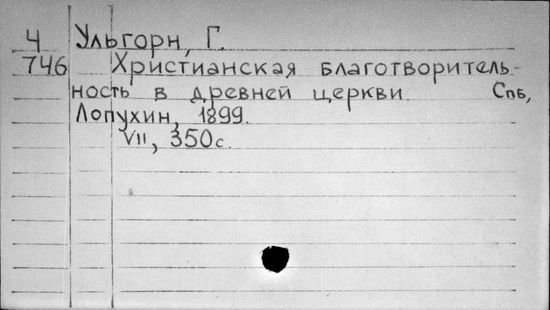 4 Ульгорн, Г.
746 Христианская благотворитель-
ность в древней церкви. Спб,
Лопухин, 1899.
VII, 350с.